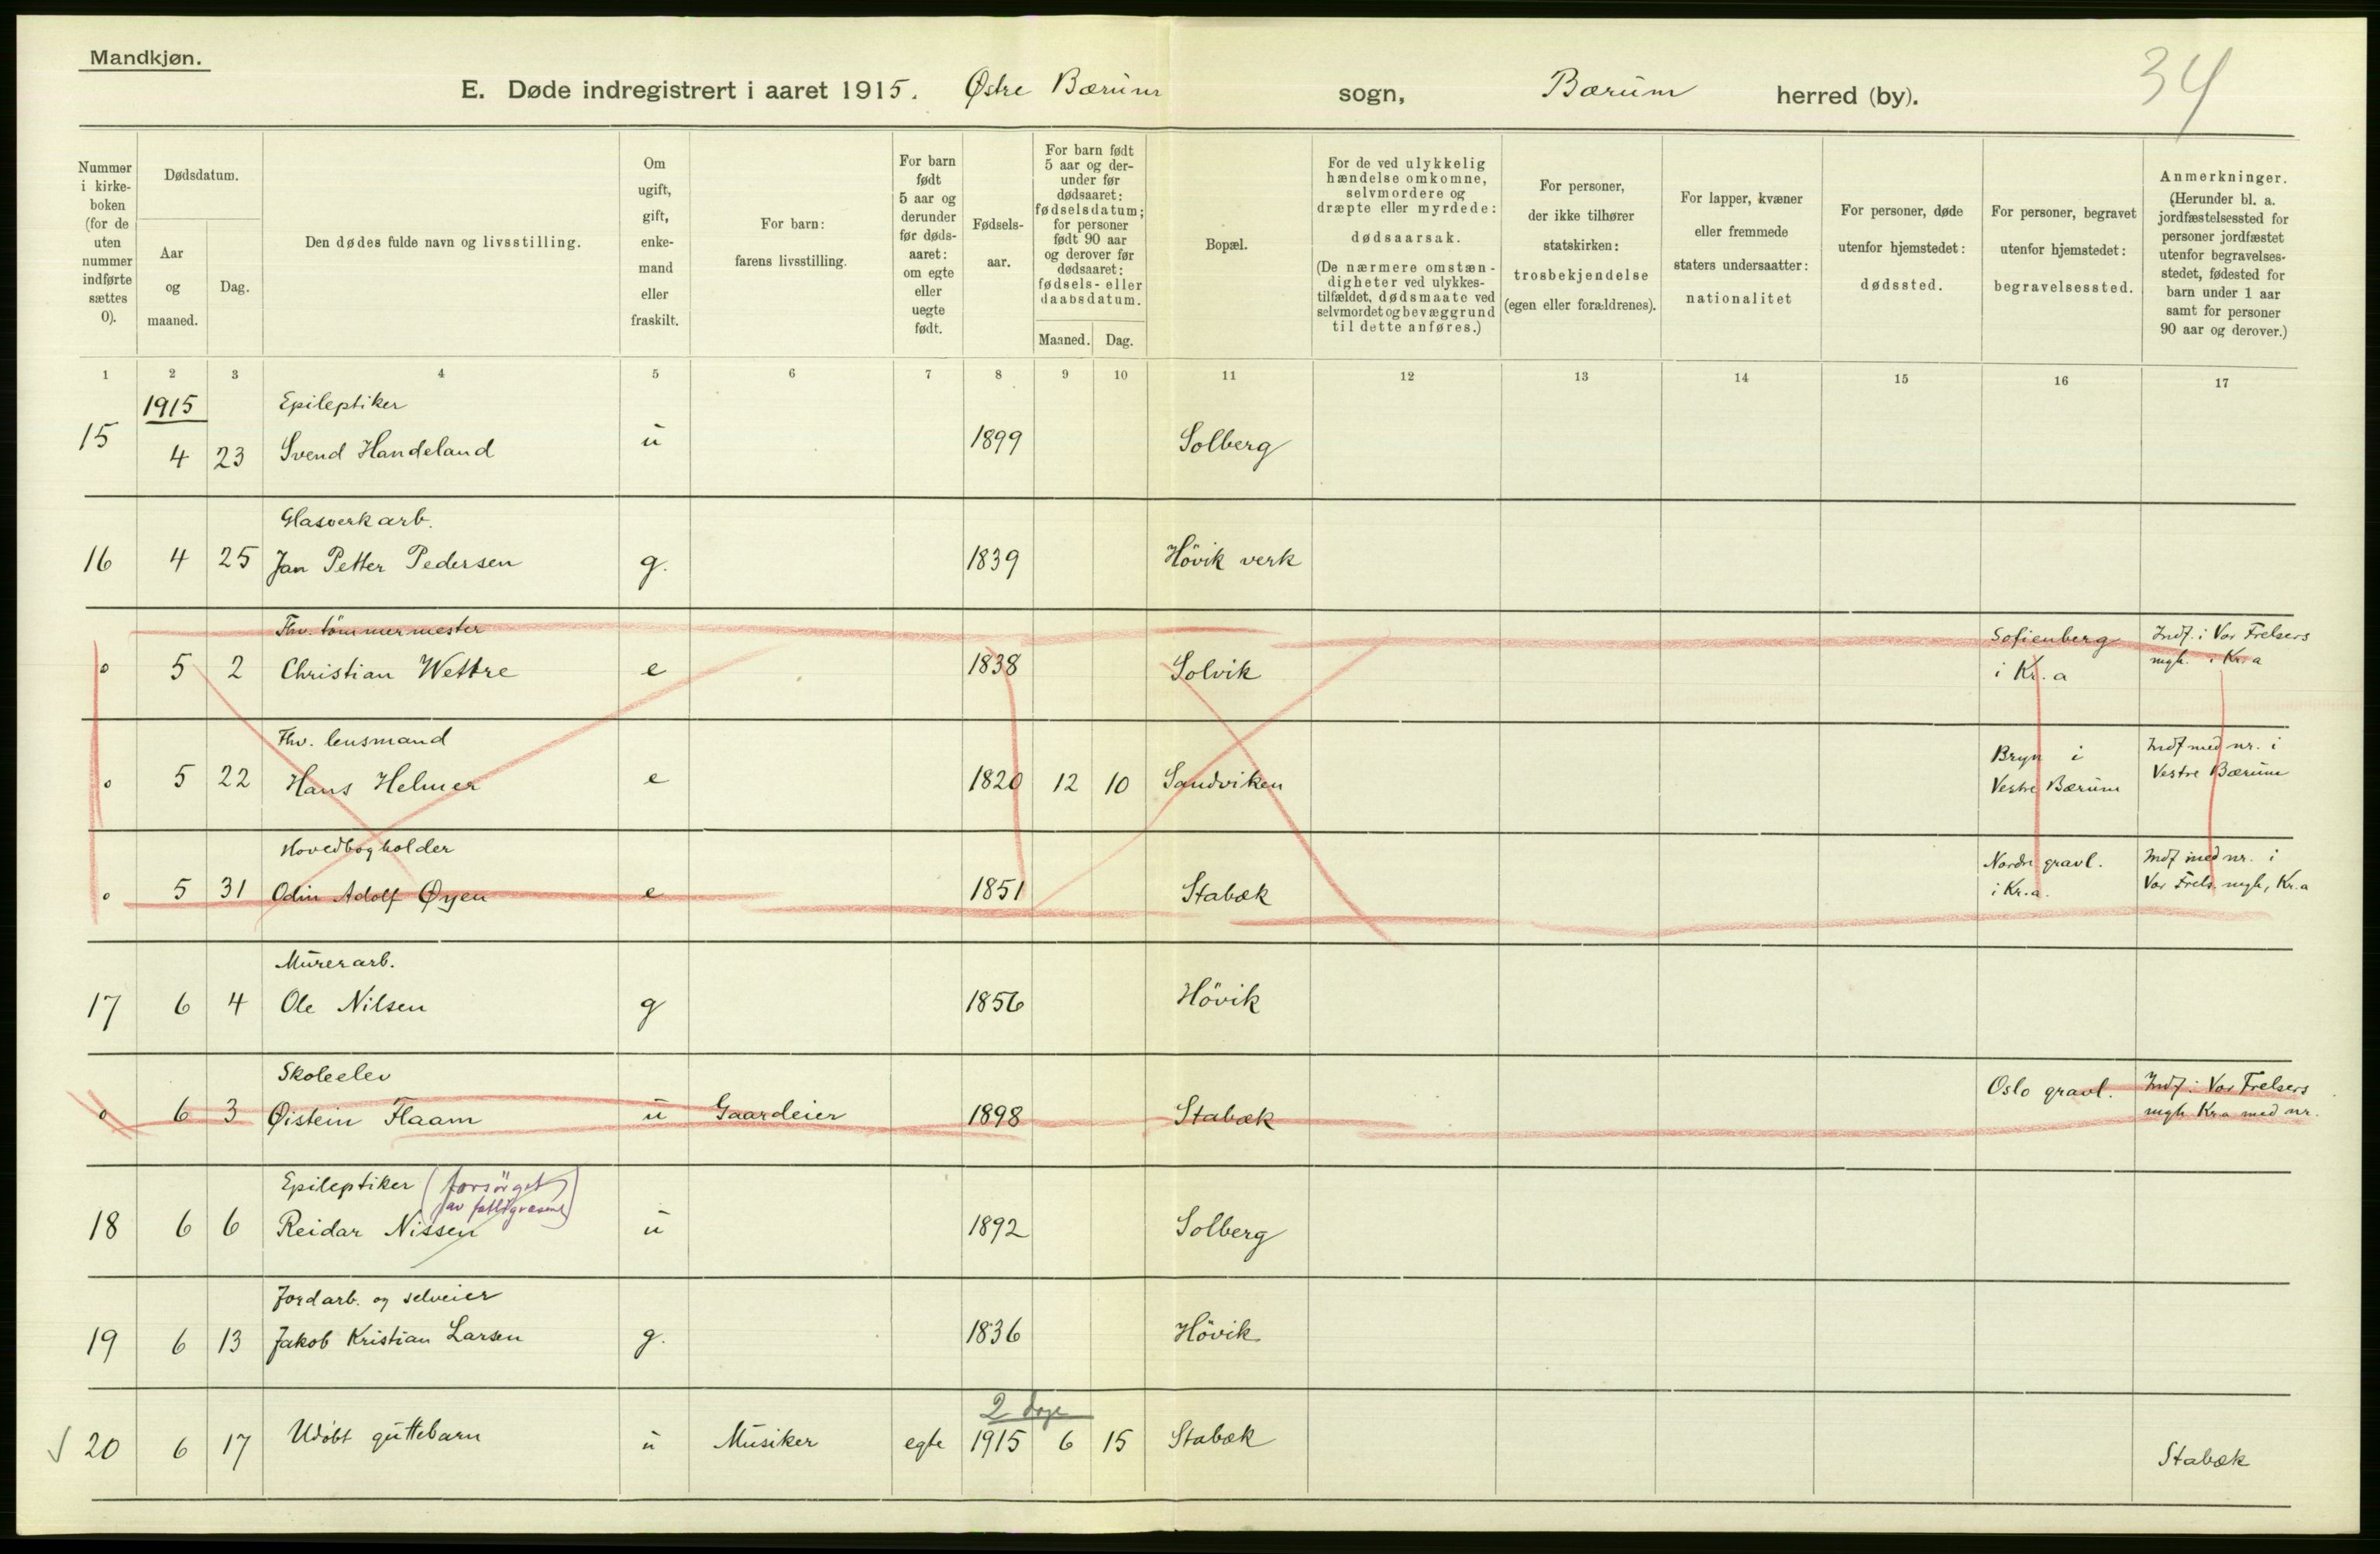 Mandkjøn.
34
E. Døde indregistrert i aaret 1915. Østre Bærum sogn, Bærum herred (by).
Nummer i kirke- boken (for de uten nummer indførte sættes 0).
Dødsdatum.
Aar og maaned.
Dag.
Den dødes fulde navn og livsstilling.
Om ugift, gift, enke- mand eller fraskilt.
For barn: farens livsstilling.
For barn født 5 aar og derunder før døds- aaret: om egte eller uegte født.
Fødsels- aar.
For barn født 5 aar og der- under før dødsaaret: fødselsdatum; for personer født 90 aar og derover før dødsaaret: fødsels- eller daabsdatum.
Maaned. Dag.
Bopæl.
For de ved ulykkelig hændelse omkomne, selvmordere og dræpte eller myrdede: dødsaarsak. (De nærmere omstæn- digheter ved ulykkes- tilfældet, dødsmaate ved selvmordet og bevæggrund til dette anføres.)
For personer, der ikke tilhører statskirken: trosbekjendelse (egen eller forældrenes).
For lapper, kvæner eller fremmede staters undersaatter: nationalitet
For personer, døde utenfor hjemstedet: dødssted.
For personer, begravet utenfor hjemstedet: begravelsessted.
Anmerkninger. (Herunder bl. a. jordfæstelsessted for personer jordfæstet utenfor begravelses- stedet, fødested for barn under 1 aar samt for personer 90 aar og derover.)
1 2 3 4 5 6 7 8 9 10 11 12 13 14 15 16 17
1915 Epileptiker
15 4 23 Svend Handeland u 1899 Solberg
Glasverkarb.
16 4 25 Jan Petter Pedersen g. 1839 Hövik verk
Fhv. tömmermester Sofienberg Indf. i Vor Frelsers
o 5 2 Christian Wettre e 1838 Solvik i Kr.a mgh. i Kr.a
Fhv. lensmand Bryn i Indf med nr. i
o 5 22 Hans Helmer e 1820 12 10 Sandviken Vestre Bærum Vestre Bærum
Hovedbogholder Nordre gravl. Indf med nr. i
o 5 31 Odin Adolf Øyen e 1851 Stabæk i Kr.a. Vor Frels. mgh, Kr.a
Murerarb.
17 6 4 Ole Nilsen g 1856 Hövik
Skoleelev Oslo gravl. Indf i Vor Frelsers
o 6 3 Øistein Flaam u Gaardeier 1898 Stabæk mgh Kr.a med nr.
Epileptiker (forsörget
av fattigvæsenet)
18 6 6 Reidar Nissen u 1892 Solberg
Jordarb. og selveier
19 6 13 Jakob Kristian Larsen g. 1836 Hövik
2 dage
20 6 17 Udöbt guttebarn u Musiker egte 1915 6 15 Stabæk Stabæk